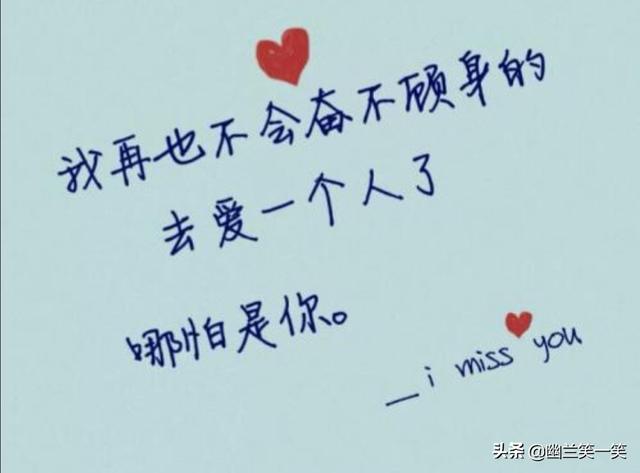 我再也不会奋不顾身的
去爱一个人了
哪怕是你。
_i miss you
头条 @幽兰笑一笑